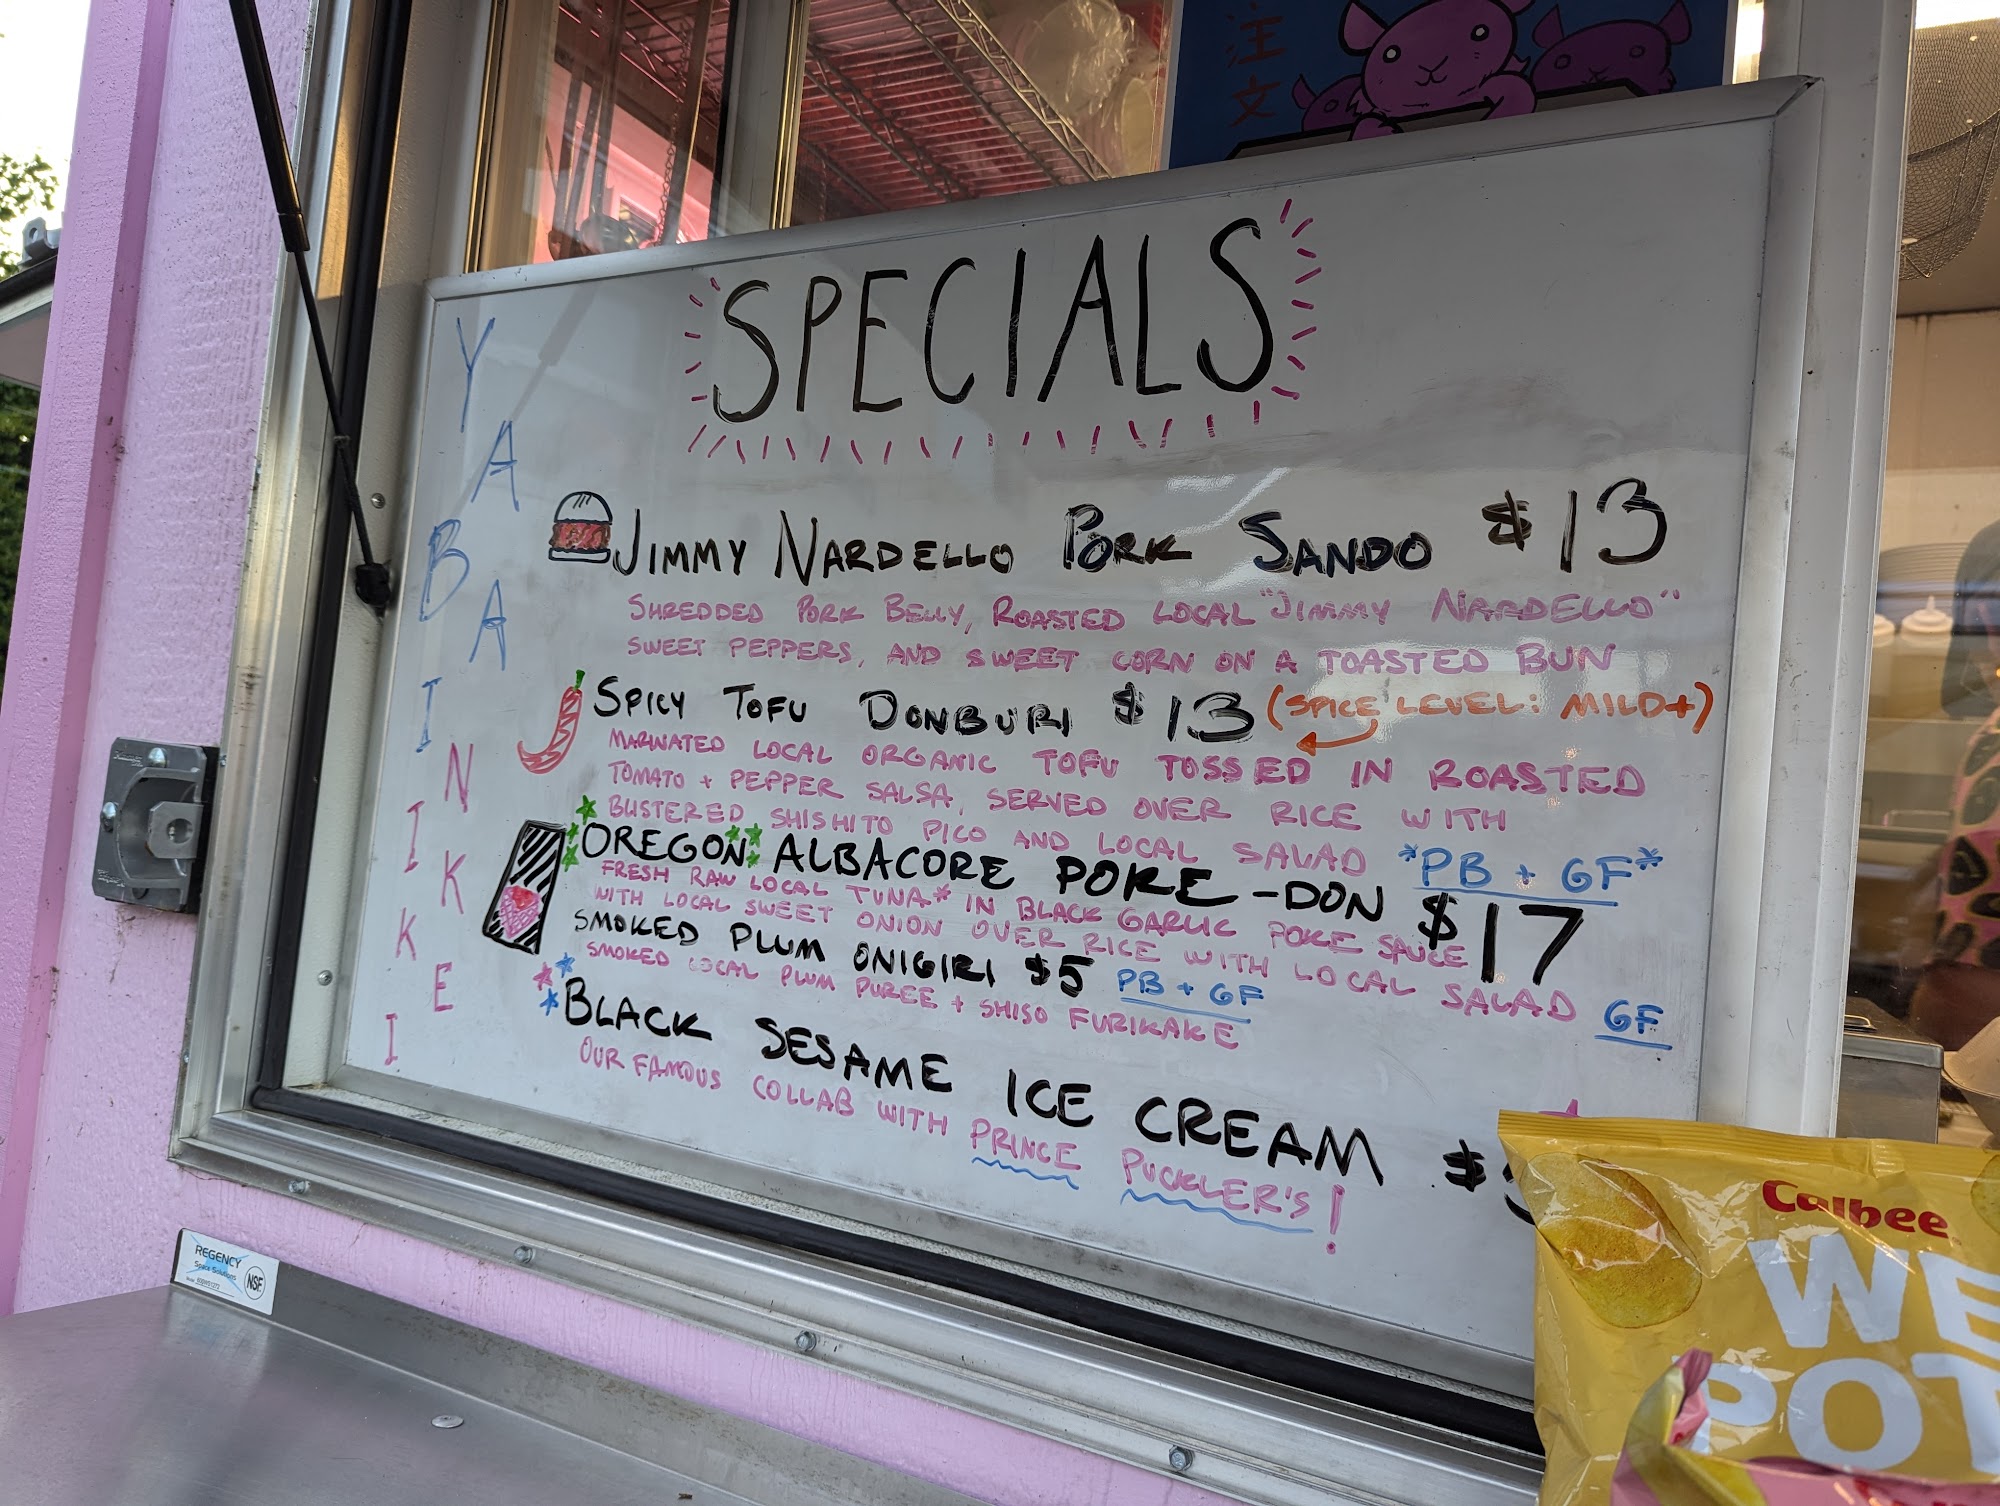 注文
SPECIALS
YABAI
NIKKEI
JIMMY NARDELLO PORK SANDO $13
SHREDDED PORK BELLY, ROASTED LOCAL "JIMMY NARDELLO"
SWEET PEPPERS, AND SWEET CORN ON A TOASTED BUN
SPICY TOFU DONBURI $13 (SPICE LEVEL: MILD+)
MARINATED LOCAL ORGANIC TOFU TOSSED IN ROASTED
TOMATO + PEPPER SALSA, SERVED OVER RICE WITH
BLISTERED SHISHITO PICO AND LOCAL SALAD *PB + GF*
OREGON ALBACORE POKE-DON $17
FRESH RAW LOCAL TUNA* IN BLACK GARLIC POKE SAUCE
WITH LOCAL SWEET ONION OVER RICE WITH LOCAL SALAD GF
SMOKED PLUM ONIGIRI $5 PB + GF
SMOKED LOCAL PLUM PUREE + SHISO FURIKAKE
BLACK SESAME ICE CREAM $
OUR FAMOUS COLLAB WITH PRINCE PUCKLER'S!
REGENCY
Space Solutions
NSF
Calbee
WE
POT